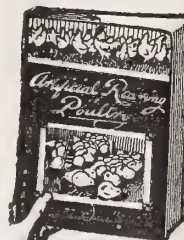 Artificial Rearing
Poultry